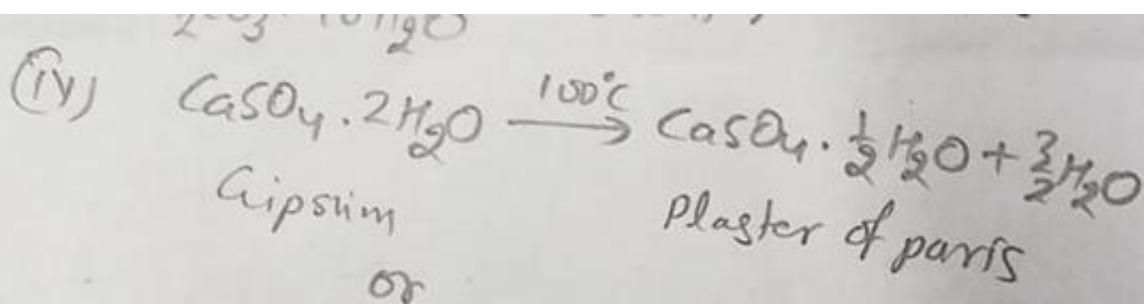 (iv) CaSO₄.2H₂O —100°C→ CaSO₄.½H₂O + 3/2H₂O
Gipsum Plaster of paris
or